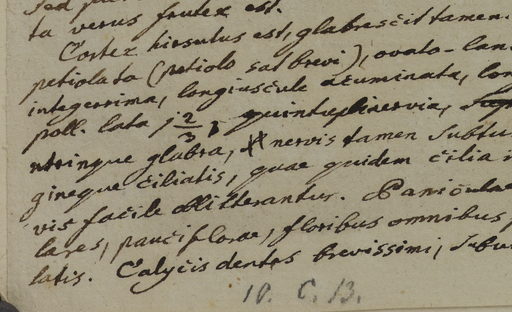 ta verus frutex est.
Cortex hirsutus est, glabrescit tamen.
petiolata (petiolo sat brevi), ovato-lan
integerrima, longiuscule acuminata, lon
poll. lata 1 2/3, quintuplinervia,
utrinque glabra, nervis tamen subtu
gineque ciliatis, quae quidem cilia
vis facile obliterantur. Paniculae
lares, pauciflorae, floribus omnibus
latis. Calycis dentes brevissimi, subu
10. C. 13.